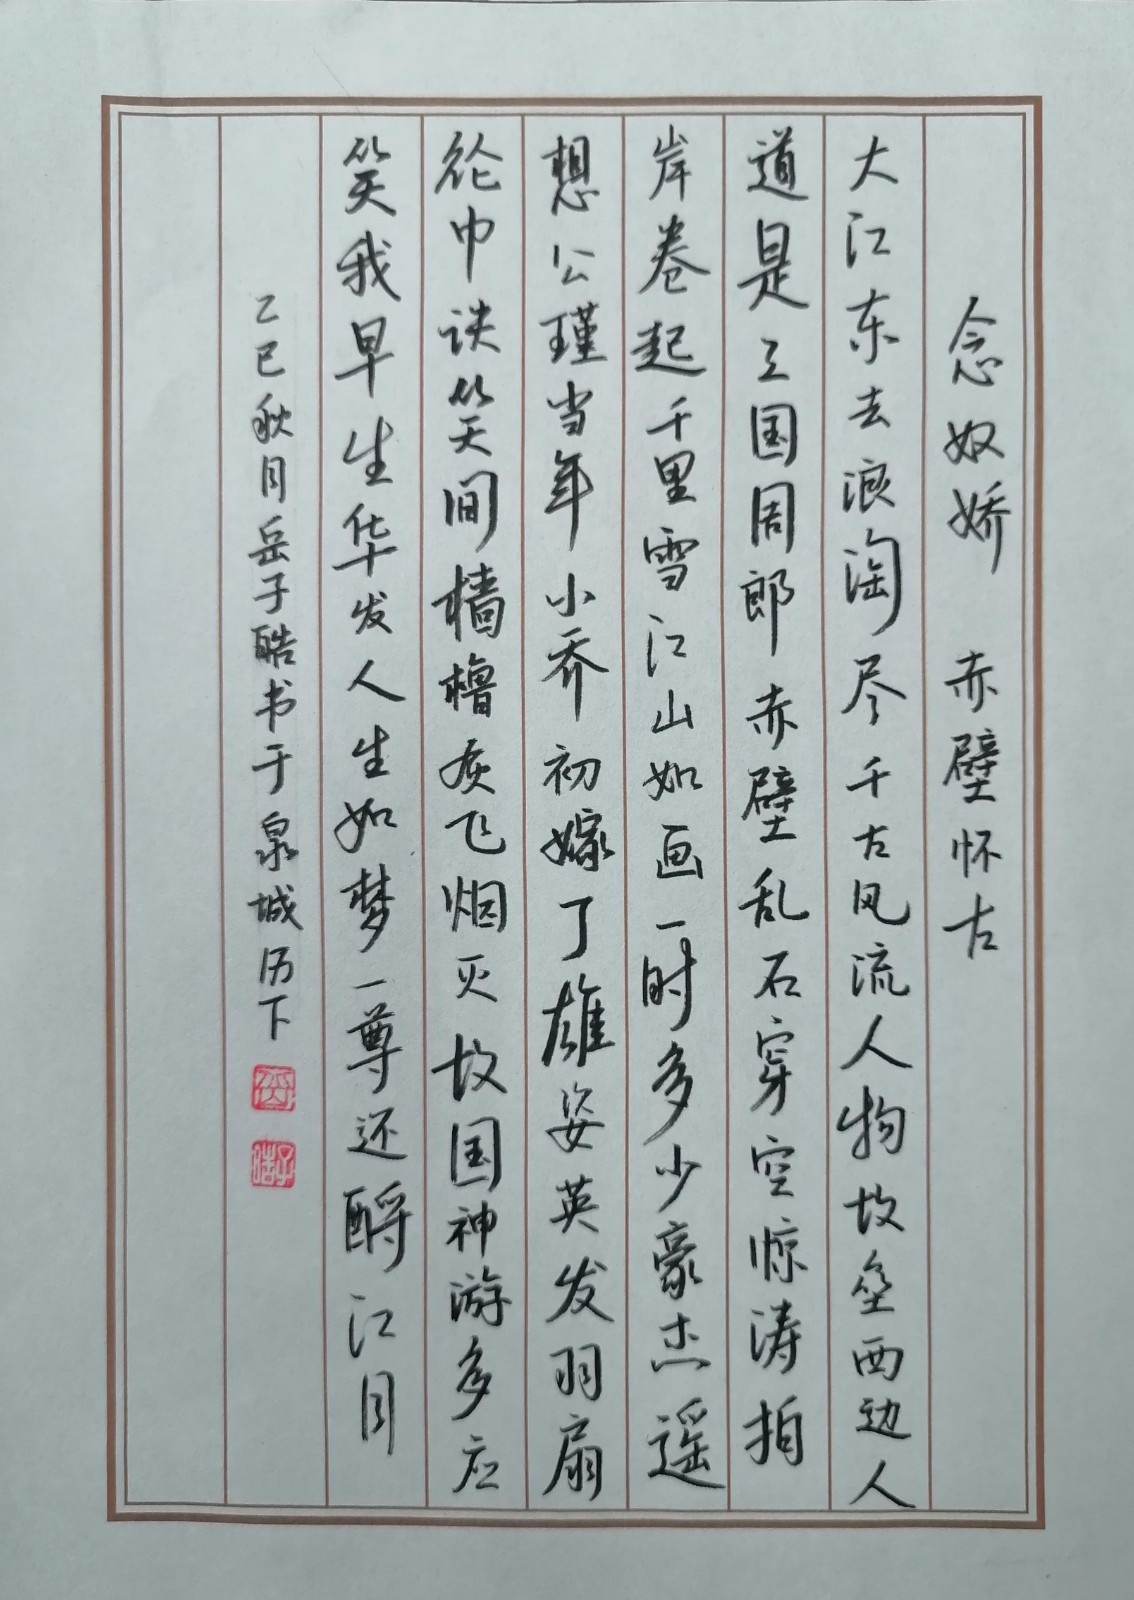 念奴娇 赤壁怀古
大江东去浪淘尽千古风流人物故垒西边人
道是三国周郎赤壁乱石穿空惊涛拍
岸卷起千里雪江山如画一时多少豪杰遥
想公瑾当年小乔初嫁了雄姿英发羽扇
纶巾谈笑间樯橹灰飞烟灭故国神游多应
笑我早生华发人生如梦一尊还酹江月
乙巳秋月岳子皓书于泉城历下